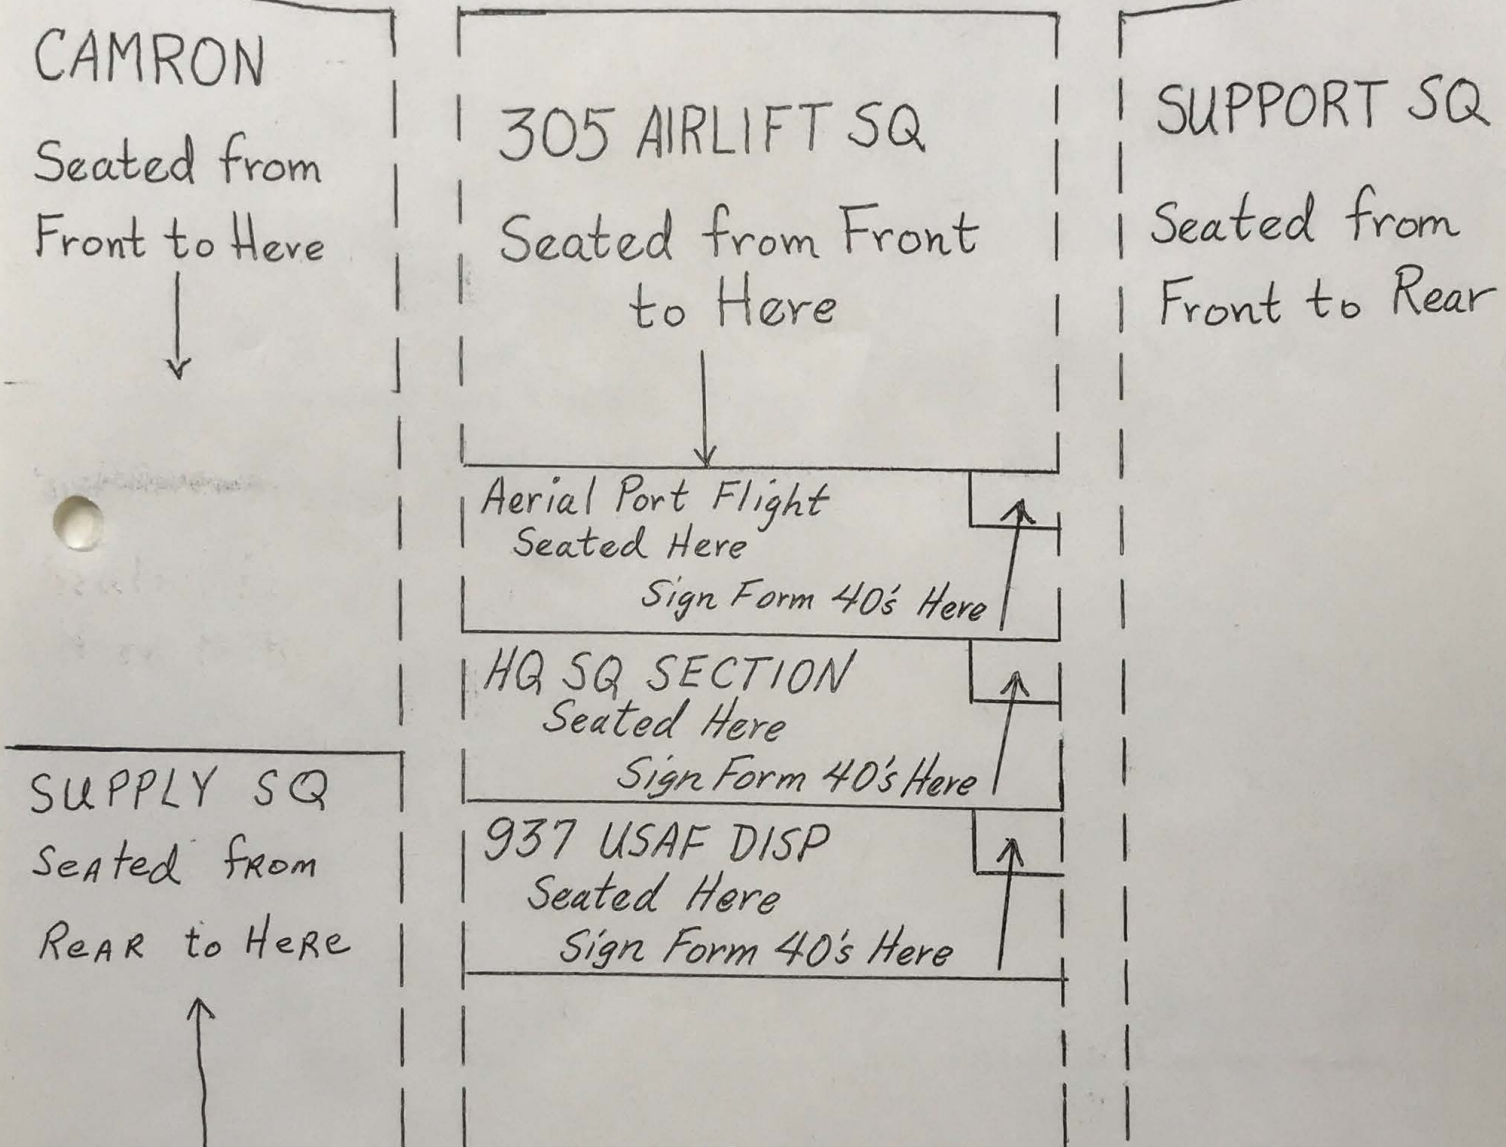 CAMRON
Seated from
Front to Here
SUPPLY SQ
Seated from
Rear to Here
305 AIRLIFT SQ
Seated from Front
to Here
Aerial Port Flight
Seated Here
Sign Form 40's Here
HQ SQ SECTION
Seated Here
Sign Form 40's Here
937 USAF DISP
Seated Here
Sign Form 40's Here
SUPPORT SQ
Seated from
Front to Rear